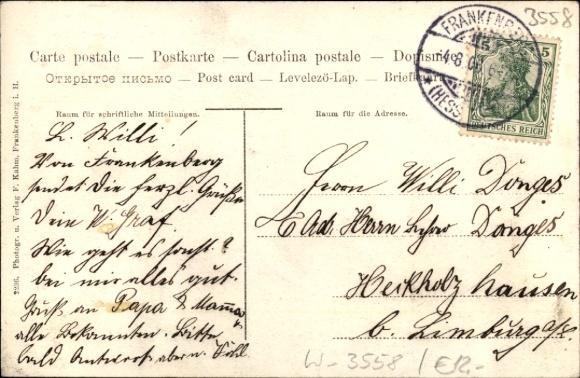 3558
Carte postale — Postkarte — Cartolina postale — Dopisnice
Открытое письмо — Post card — Levelezö-Lap. — Briefkaart
Raum für schriftliche Mitteilungen.
Raum für die Adresse.
FRANKENB
(HESS
5
DEUTSCHES REICH
L. Willi!
Von Frankenberg
sendet Die herzl. Grüße
Dein W. Graf.
Wie geht es sonst?
bei mir alles gut.
Gruß an Papa & Mama
alle Bekannten. Bitte
bald Antwort
Herrn Willi Dönges
Ad. Herrn Dönges
Heckholzhausen
b. Limburg a/L.
W-3558 /
2296. Photogr. u. Verlag F. Kahm, Frankenberg i. H.